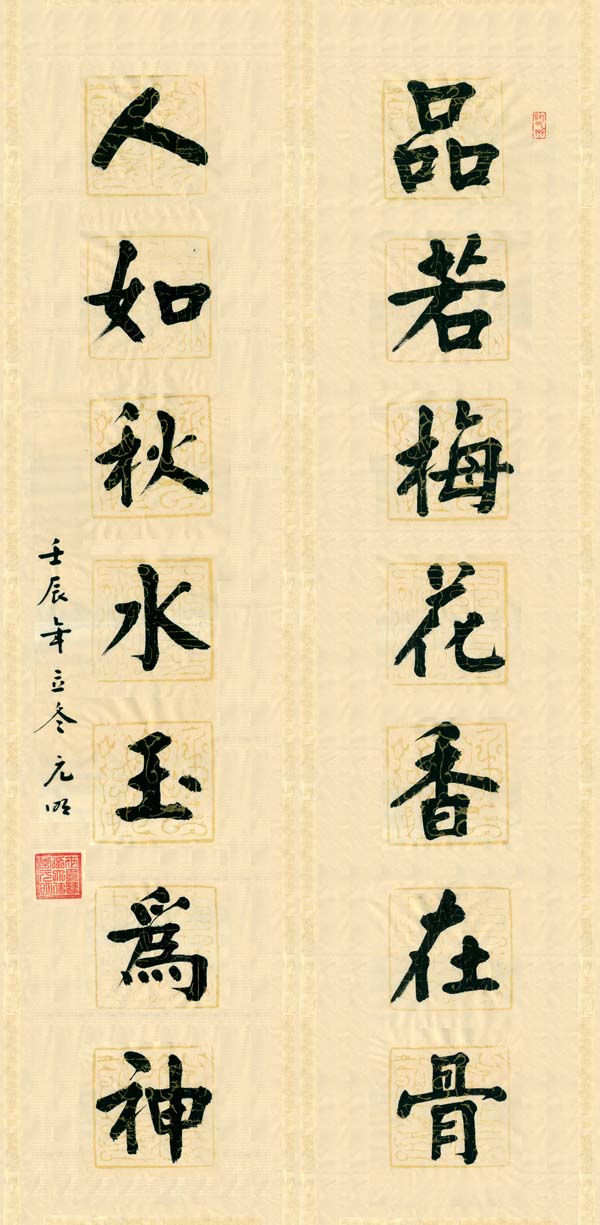 品若梅花香在骨
人如秋水玉為神
壬辰年立冬元明